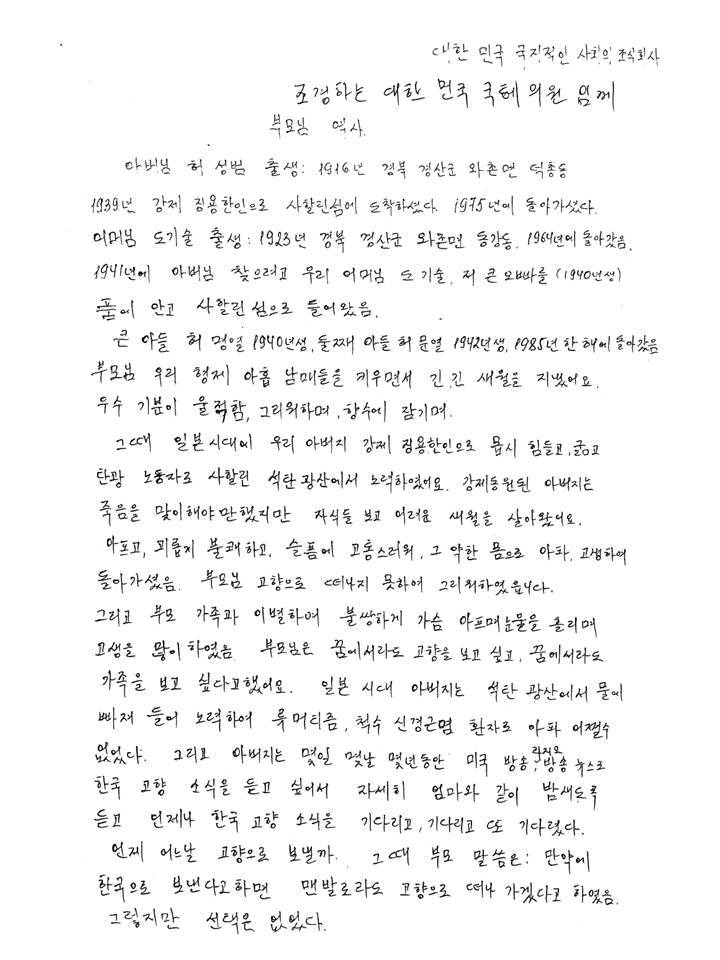 대한 민국 국지적인 사회의 조식회사
조경하는 대한 민국 국헤 의원 임께
부모님 역사.
아버님 허 성범 출생: 1916년 경북 경산군 와촌면 덕촌동
1939년 강제 징용한인으로 사할린섬에 도착하셨다. 1975년에 돌아가셨다.
어머님 도기술 출생: 1923년 경북 경산군 와촌면 동강동. 1964년에 돌아갔음.
1941년에 아버님 찾으려고 우리 어머님 도기술, 저 큰 오빠를 (1940년생)
품에 안고 사할린 섬으로 들어왔음.
큰 아들 허 명열 1940년생, 둘째 아들 허 문열 1942년생, 1985년 한 해에 돌아갔음
부모님 우리 형제 아홉 남매들을 키우면서 긴 긴 새월을 지냈어요.
우수 기분이 울적함, 그리워하며, 향수에 잠기며.
그때 일본시대에 우리 아버지 강제 징용한인으로 몹시 힘들고, 굶고
탄광 노동자로 사할린 석탄 광산에서 노력하였어요. 강제동원된 아버지는
죽음을 맞이해야만했지만 자식들 보고 어려운 새월을 살아왔어요.
아프고, 괴롭지 불쾌하고, 슬픔에 고통스러워, 그 약한 몸으로 아파, 고생하여
돌아가셨음. 부모님 고향으로 떠나지 못하여 그리워하였읍니다.
그리고 부모 가족과 이별하여 불쌍하게 가슴 아프며 눈물을 흘리며
고생을 많이 하였음. 부모님은 꿈에서라도 고향을 보고 싶고, 꿈에서라도
가족을 보고 싶다고했어요. 일본 시대 아버지는 석탄 광산에서 물에
빠져 들어 노력하여 룩머티즘, 척수 신경근염 환자로 아파 어쩔수
없었다. 그리고 아버지는 몇일 몇날 몇년동안 미국 방송, 라지오 방송 뉴스로
한국 고향 소식을 듣고 싶어서 자세히 엄마와 같이 밤새도록
듣고 언제나 한국 고향 소식을 기다리고, 기다리고 또 기다렸다.
언제 어느날 고향으로 보낼까. 그때 부모 말씀은: 만약에
한국으로 보낸다고하면 맨발로라도 고향으로 떠나 가겠다고 하였음.
그렇지만 선택은 없었다.